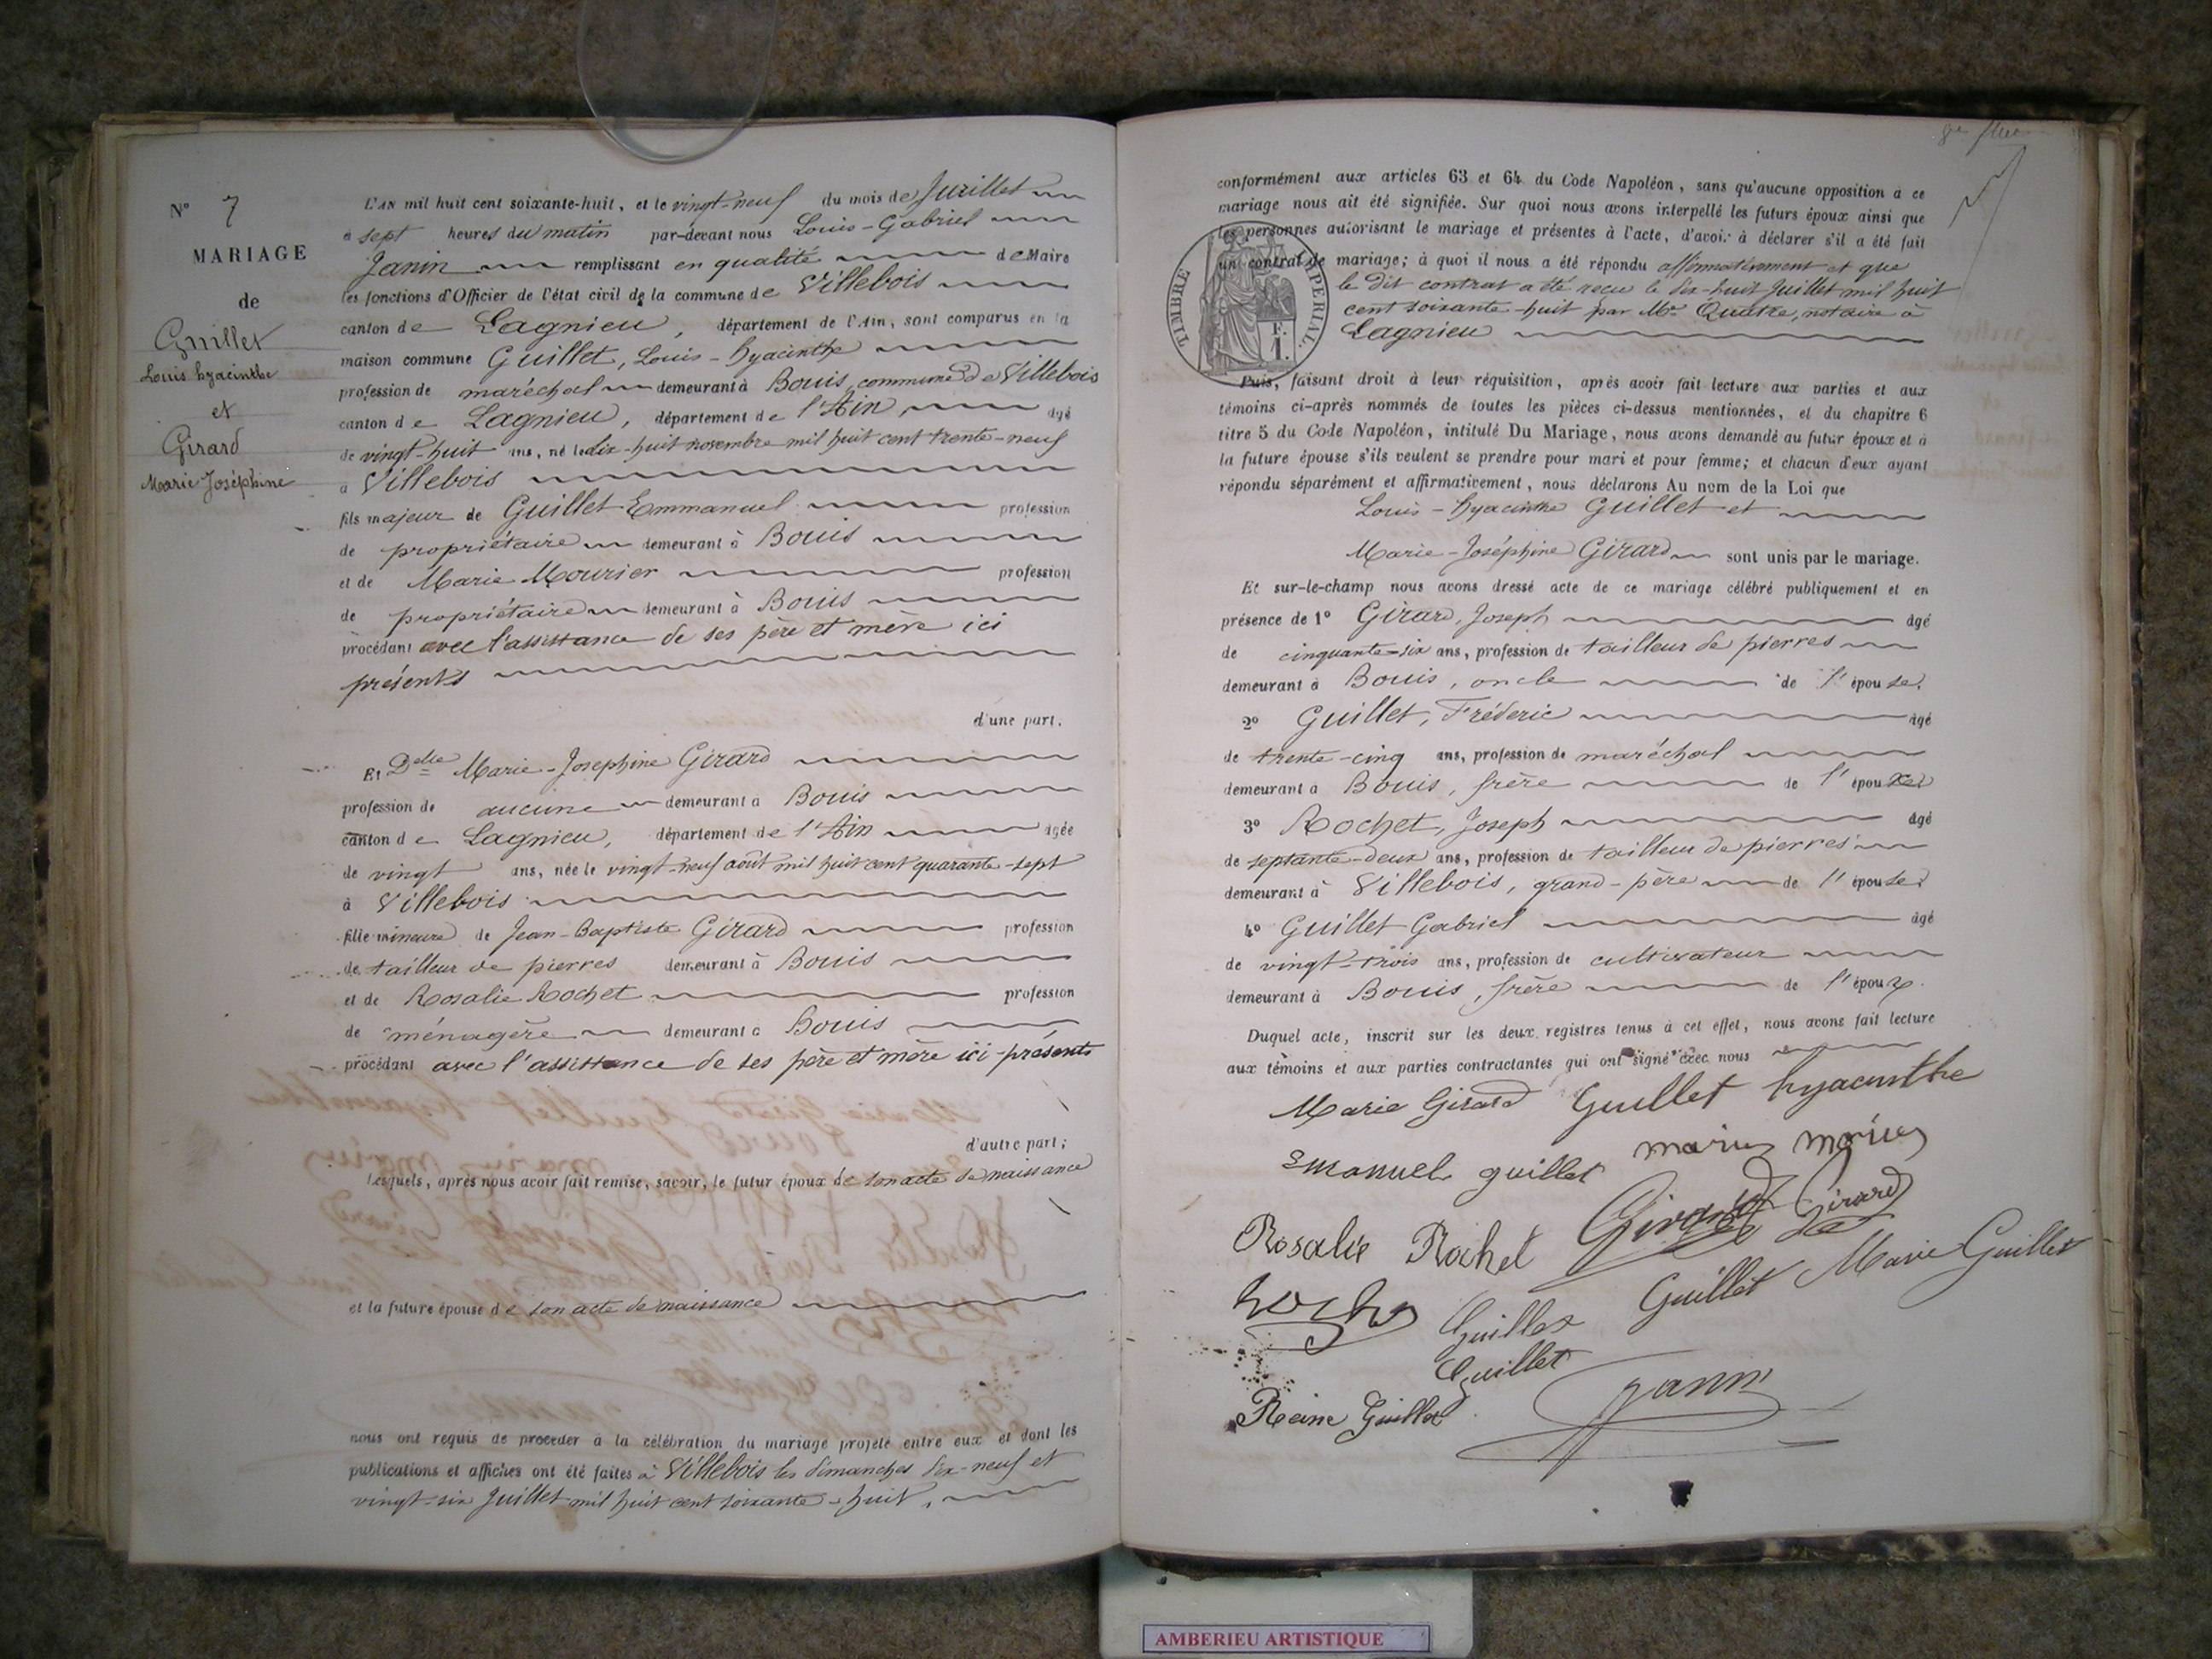 N° 7
MARIAGE
de
Guillet
Louis hyacinthe
et
Girard
Marie-Joséphine
L'AN mil huit cent soixante-huit, et le vingt-neuf du mois de Juillet
à sept heures du matin par-devant nous Louis-Gabriel
Janin remplissant en qualité de Maire
les fonctions d'Officier de l'état civil de la commune de Villebois
canton de Lagnieu, département de l'Ain, sont comparus en la
maison commune Guillet, Louis-hyacinthe
profession de maréchal demeurant à Bouis commune de Villebois
canton de Lagnieu, département de l'Ain âgé
de vingt-huit ans, né le dix-huit novembre mil huit cent trente-neuf
à Villebois
fils majeur de Guillet Emmanuel profession
de propriétaire demeurant à Bouis
et de Marie Mourier profession
de propriétaire demeurant à Bouis
procédant avec l'assistance de ses père et mère ici
présents
d'une part.
Et Delle Marie-Josephine Girard
profession de aucune demeurant à Bouis
canton de Lagnieu, département de l'Ain âgée
de vingt ans, née le vingt-neuf août mil huit cent quarante-sept
à Villebois
fille mineure de Jean-Baptiste Girard profession
de tailleur de pierres demeurant à Bouis
et de Rosalie Rochet profession
de ménagère demeurant à Bouis
procédant avec l'assistance de ses père et mère ici-présents
d'autre part;
Lesquels, après nous avoir fait remise, savoir, le futur époux de son acte de naissance
et la future épouse de son acte de naissance
nous ont requis de procéder à la célébration du mariage projeté entre eux et dont les
publications et affiches ont été faites à Villebois les dimanches dix-neuf et
vingt-six Juillet mil huit cent soixante-huit,
conformément aux articles 63 et 64 du Code Napoléon, sans qu'aucune opposition à ce
mariage nous ait été signifiée. Sur quoi nous avons interpellé les futurs époux ainsi que
les personnes autorisant le mariage et présentes à l'acte, d'avoir à déclarer s'il a été fait
un contrat de mariage; à quoi il nous a été répondu affirmativement et que
le dit contrat a été recu le dix-huit Juillet mil huit
cent soixante-huit par Me Quatre, notaire à
Lagnieu
TIMBRE IMPERIAL.
Puis, faisant droit à leur réquisition, après avoir fait lecture aux parties et aux
témoins ci-après nommés de toutes les pièces ci-dessus mentionnées, et du chapitre 6
titre 5 du Code Napoléon, intitulé Du Mariage, nous avons demandé au futur époux et à
la future épouse s'ils veulent se prendre pour mari et pour femme; et chacun d'eux ayant
répondu séparément et affirmativement, nous déclarons Au nom de la Loi que
Louis-hyacinthe Guillet et
Marie-Joséphine Girard sont unis par le mariage.
Et sur-le-champ nous avons dressé acte de ce mariage célébré publiquement et en
présence de 1° Girard, Joseph âgé
de cinquante-six ans, profession de tailleur de pierres
demeurant à Bouis, oncle de l'épouse.
2° Guillet, Fréderic âgé
de trente-cinq ans, profession de maréchal
demeurant à Bouis, frère de l'époux
3° Rochet, Joseph âgé
de septante-deux ans, profession de tailleur de pierres
demeurant à Villebois, grand-père de l'épouse
4° Guillet Gabriel âgé
de vingt-trois ans, profession de cultivateur
demeurant à Bouis, frère de l'époux.
Duquel acte, inscrit sur les deux registres tenus à cet effet, nous avons fait lecture
aux témoins et aux parties contractantes qui ont signé avec nous
Marie Girard Guillet hyacinthe
Emanuel guillet
Rosalie Rochet Girard Girard
Guillet Marie Guillet
Guillet
Guillet
Reine Guillet Janin
AMBERIEU ARTISTIQUE